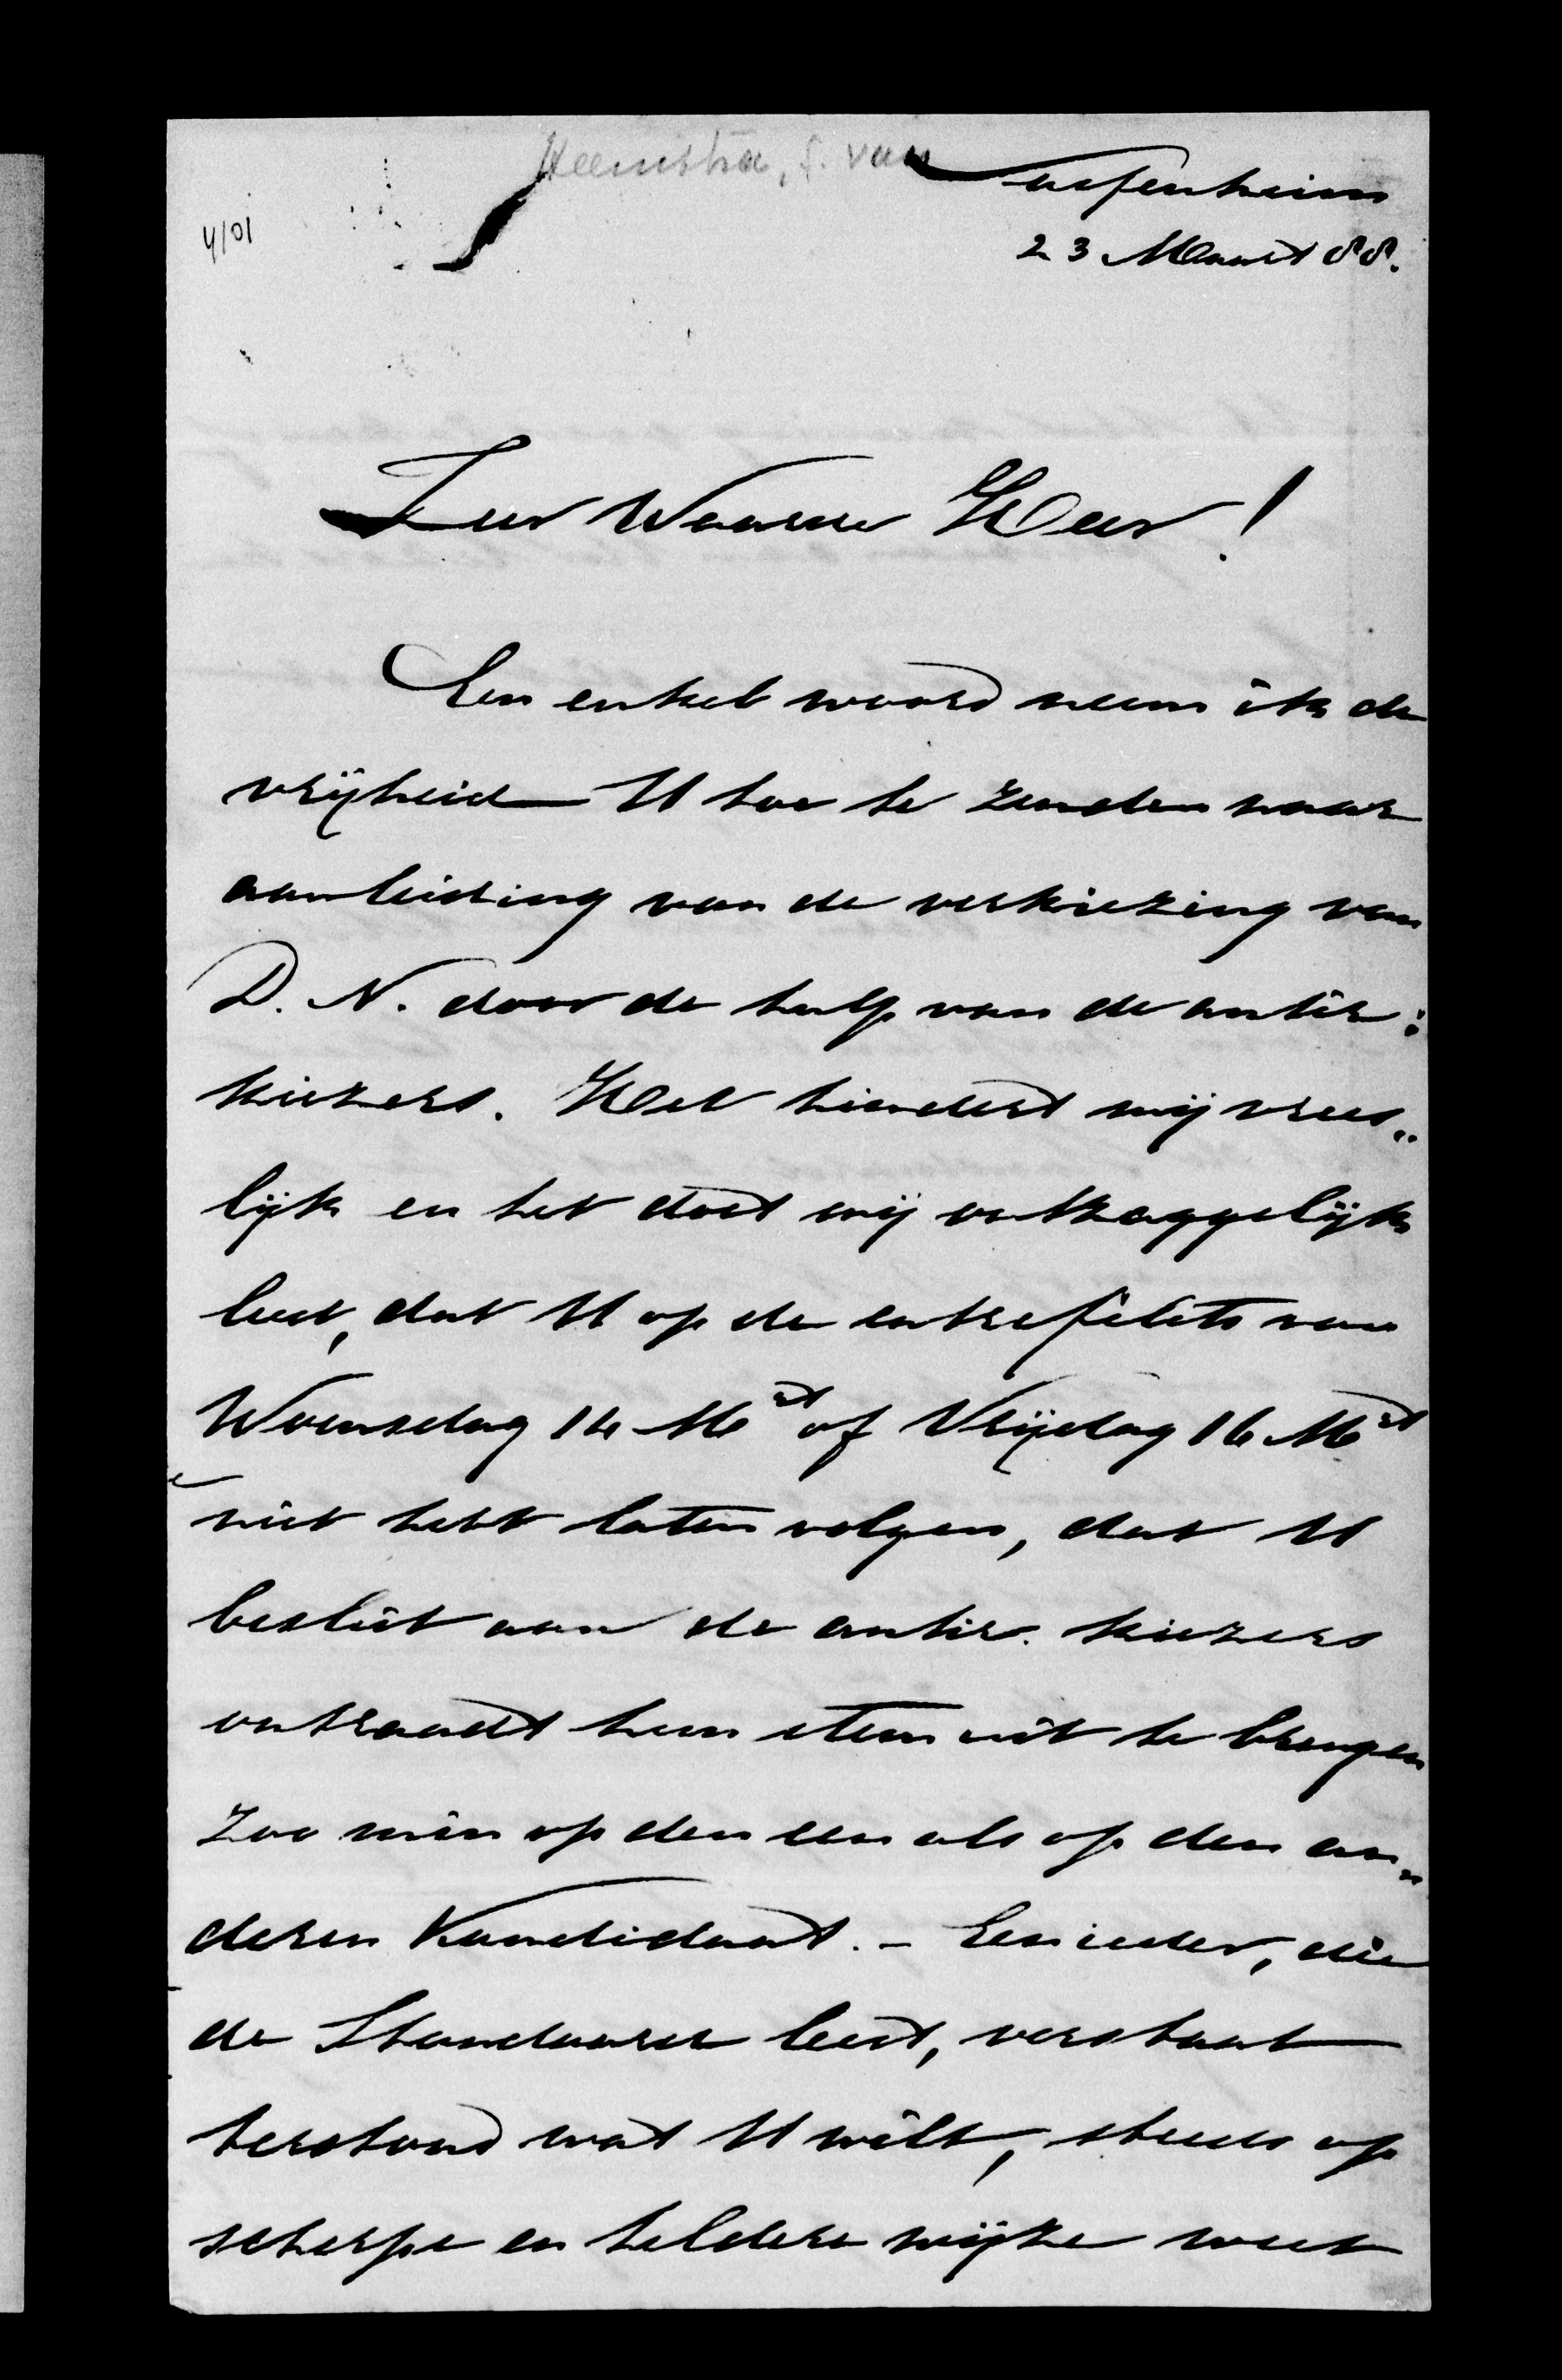 Heemstra, S. van
4101
23 Maart 88.
Zeer Waarde Heer!
Een enkel woord neem ik de
vrijheid U toe te zenden naar
aanleiding van de verkiezing van
D. N. door de hulp van de antir:
kiezers. Het hindert mij vrees„
lijk en het doet mij ontzaggelijk
leed, dat U op de entrefilets van
Woensdag 14 Mrt of Vrijdag 16 Mrt
niet hebt laten volgen, dat U
beslist aan de antir. kiezers
ontraadt hun stem uit te brengen
zoo min op den een als op den an„
deren Kandidaat. - Een ieder, die
de Standaard leest, verstaat
terstond wat U wilt, steeds op
scherpe en heldere wijze weet